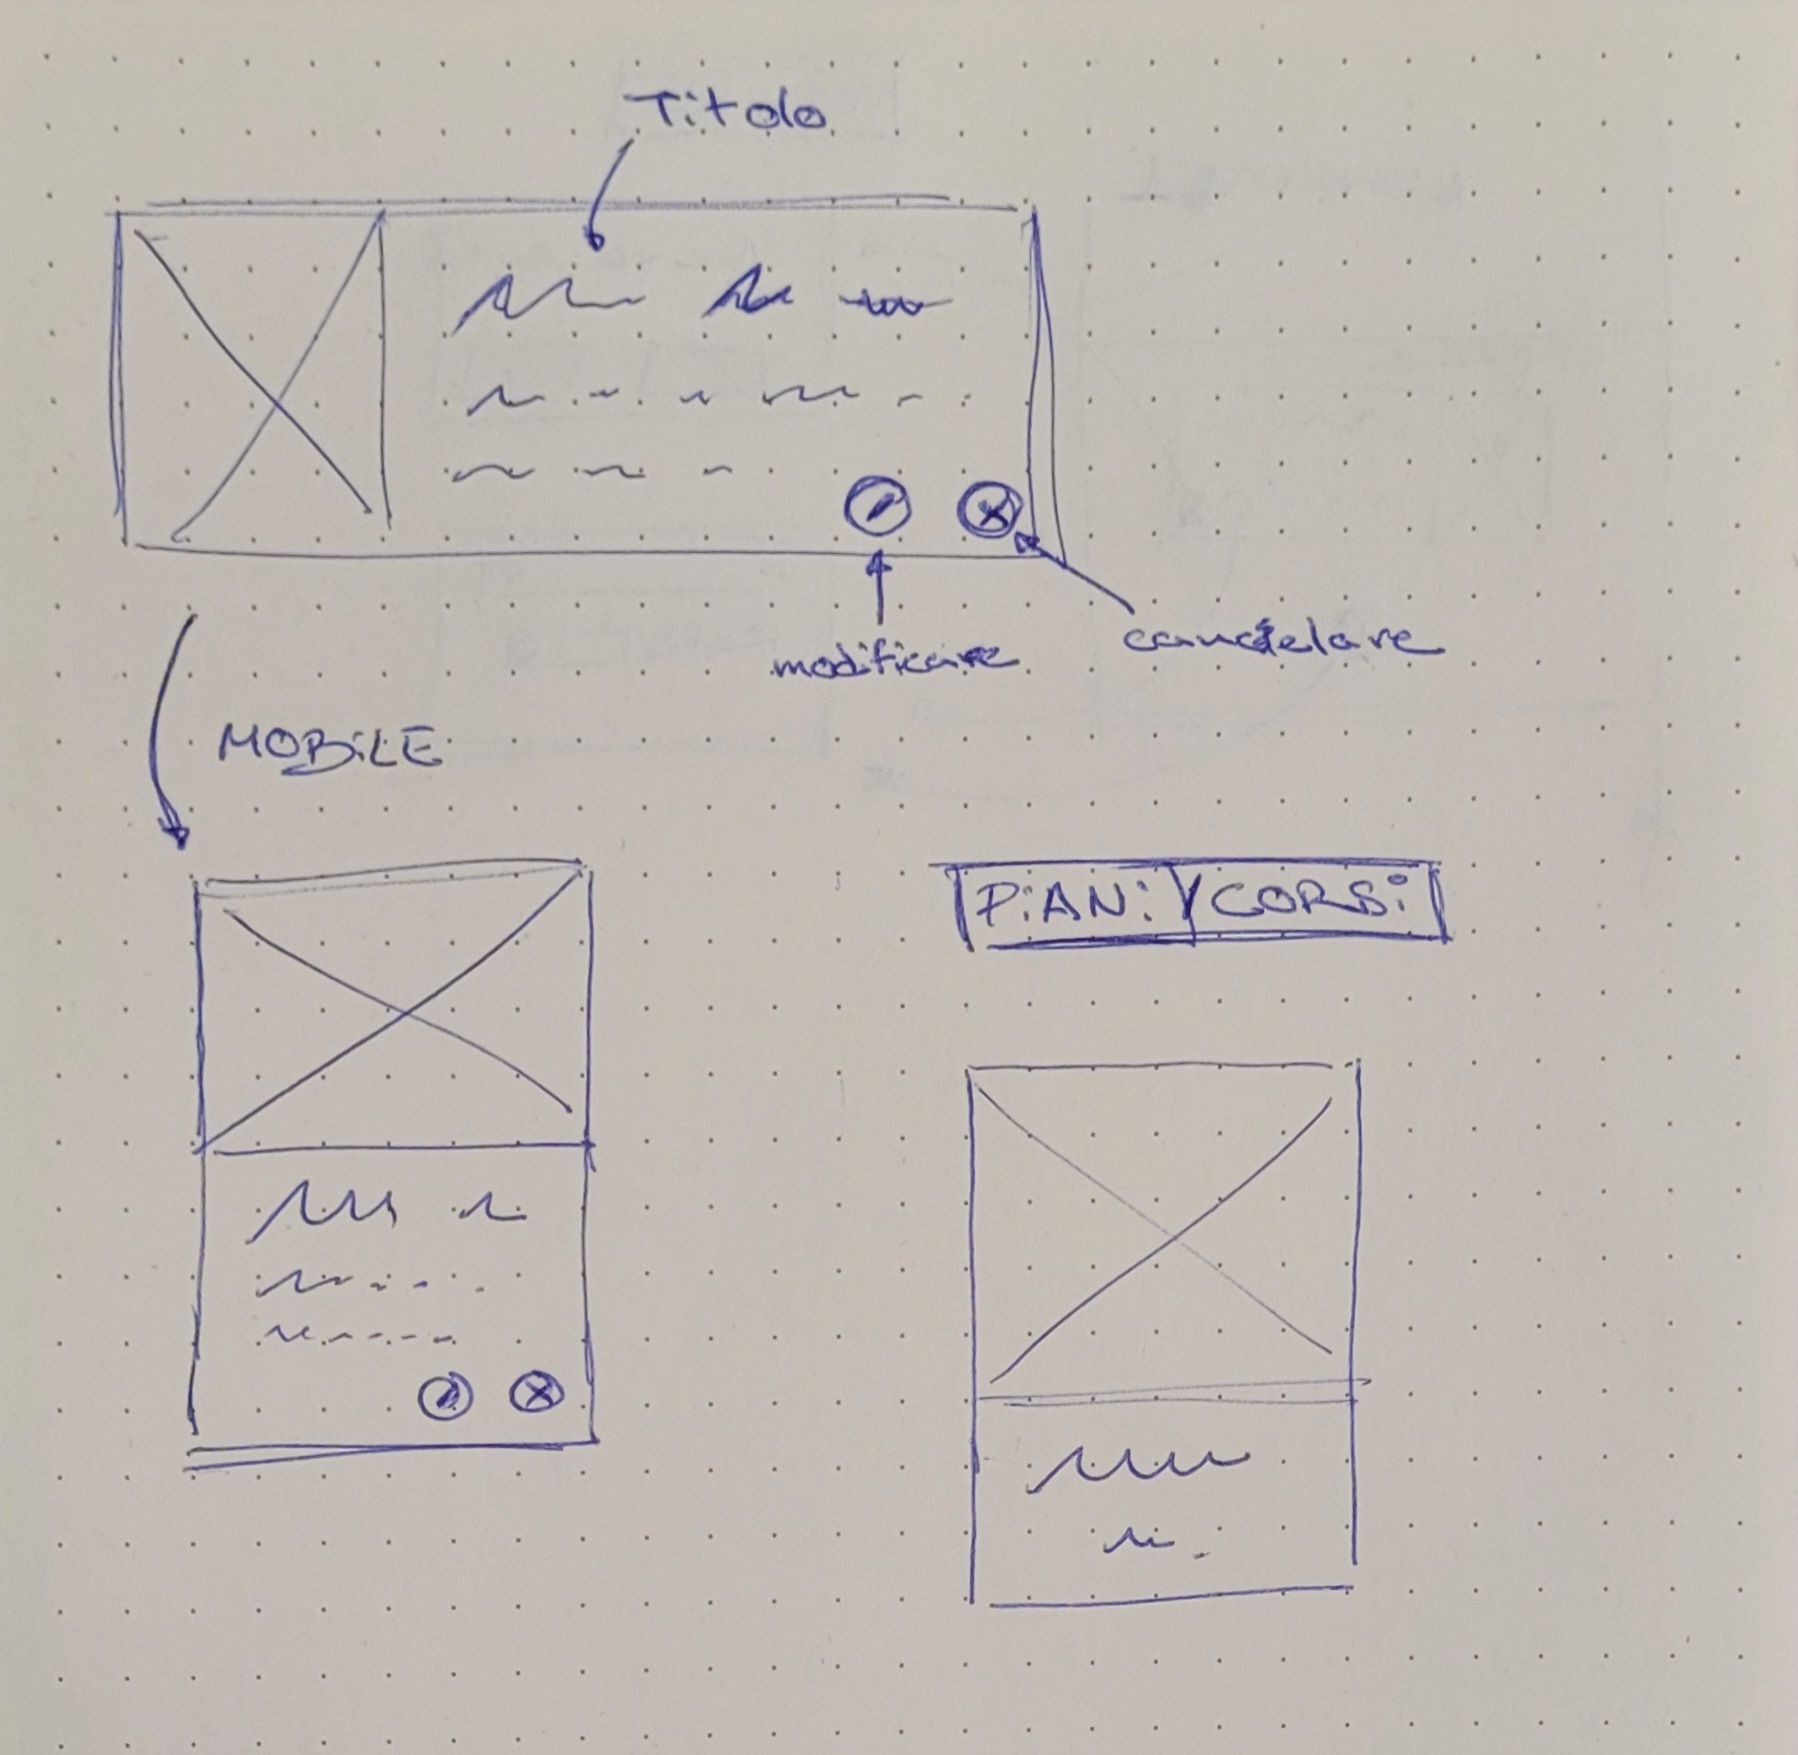 Titolo
modificare
cancelare
MOBiLE
PiANi CORSi